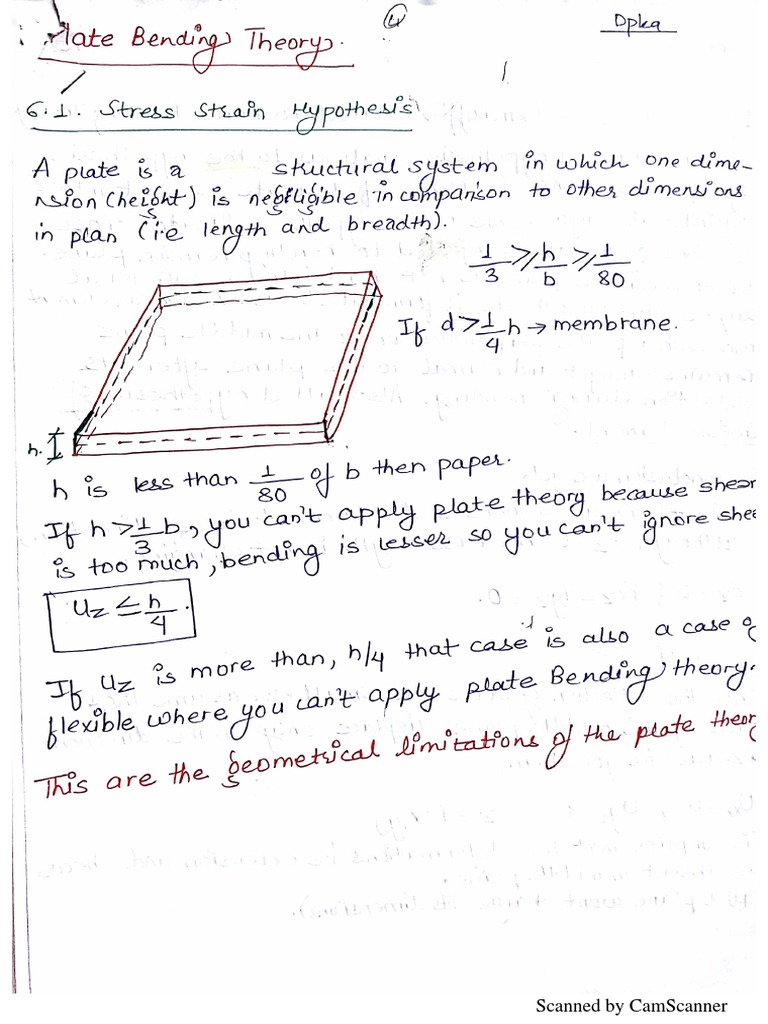 ④
Dpka
Plate Bending Theory.
6.1. Stress Strain Hypothesis
A plate is a structural system in which one dime-
nsion (height) is negligible in comparison to other dimensions
in plan (i.e length and breadth).
1/3 ≥ h/b ≥ 1/80
If d > 1/4 h → membrane.
h.
h is less than 1/80 of b then paper.
If h > 1/3 b, you can't apply plate theory because shear
is too much, bending is lesser so you can't ignore shea
Uz ≤ h/4.
If Uz is more than, h/4 that case is also a case of
flexible where you can't apply plate Bending theory.
This are the geometrical limitations of the plate theory
Scanned by CamScanner